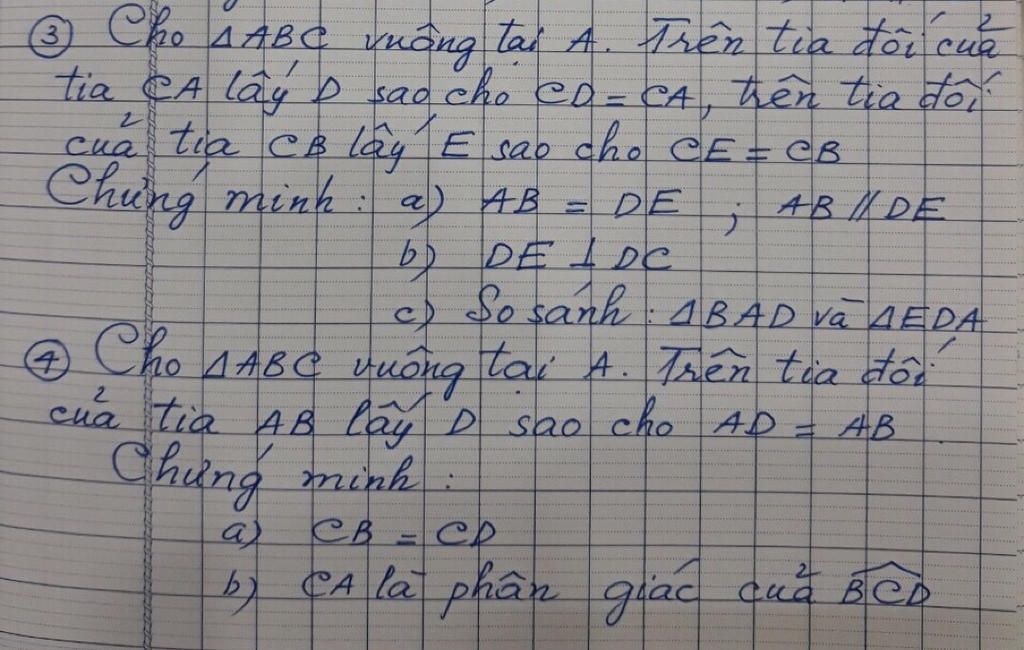 ③ Cho ΔABC vuông tại A. Trên tia đối của
tia CA lấy D sao cho CD = CA, trên tia đối
của tia CB lấy E sao cho CE = CB
Chứng minh : a) AB = DE ; AB // DE
b) DE ⊥ DC
c) So sánh : ΔBAD và ΔEDA
④ Cho ΔABC vuông tại A. Trên tia đối
của tia AB lấy D sao cho AD = AB
Chứng minh :
a) CB = CD
b) CA là phân giác của \widehat{BCD}